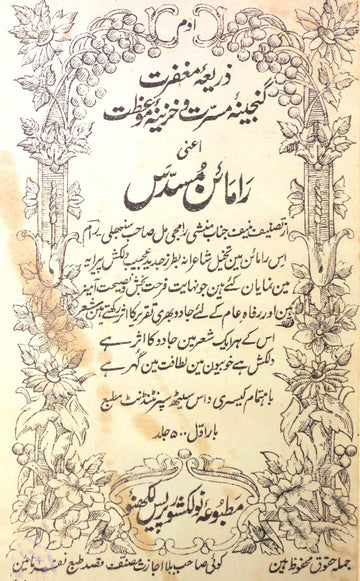 اوم
ذریعۂ مغفرت
گنجینۂ مسرت و خزینۂ موعظت
اعنی
رامائن مسدّس
از تصنیف منیف جناب منشی رامجی مل صاحب سنبھلی
اس رامائن مین تخیل شاعرانہ بطرز جدید عجیب دلکش پیرایہ
مین نمایان کئے ہین جو نہایت فرحت بخش نصیحت آمیز
ہین اور رفاہ عام کے لئے جادو بھری تقریر کا اثر رکھتے ہین شعر
اس کے ہر ایک شعر مین جادو کا اثر ہے
دلکش ہے خوبیون مین لطافت مین گہر ہے
باہتمام کیسری داس سیٹھ سپرنٹنڈنٹ مطبع
بار اوّل ۵۰۰ جلد
مطبوعۂ نولکشور پریس لکھنؤ
جملہ حقوق محفوظ ہین کوئی صاحب بلا اجازت مصنف قصد طبع نفرمائین